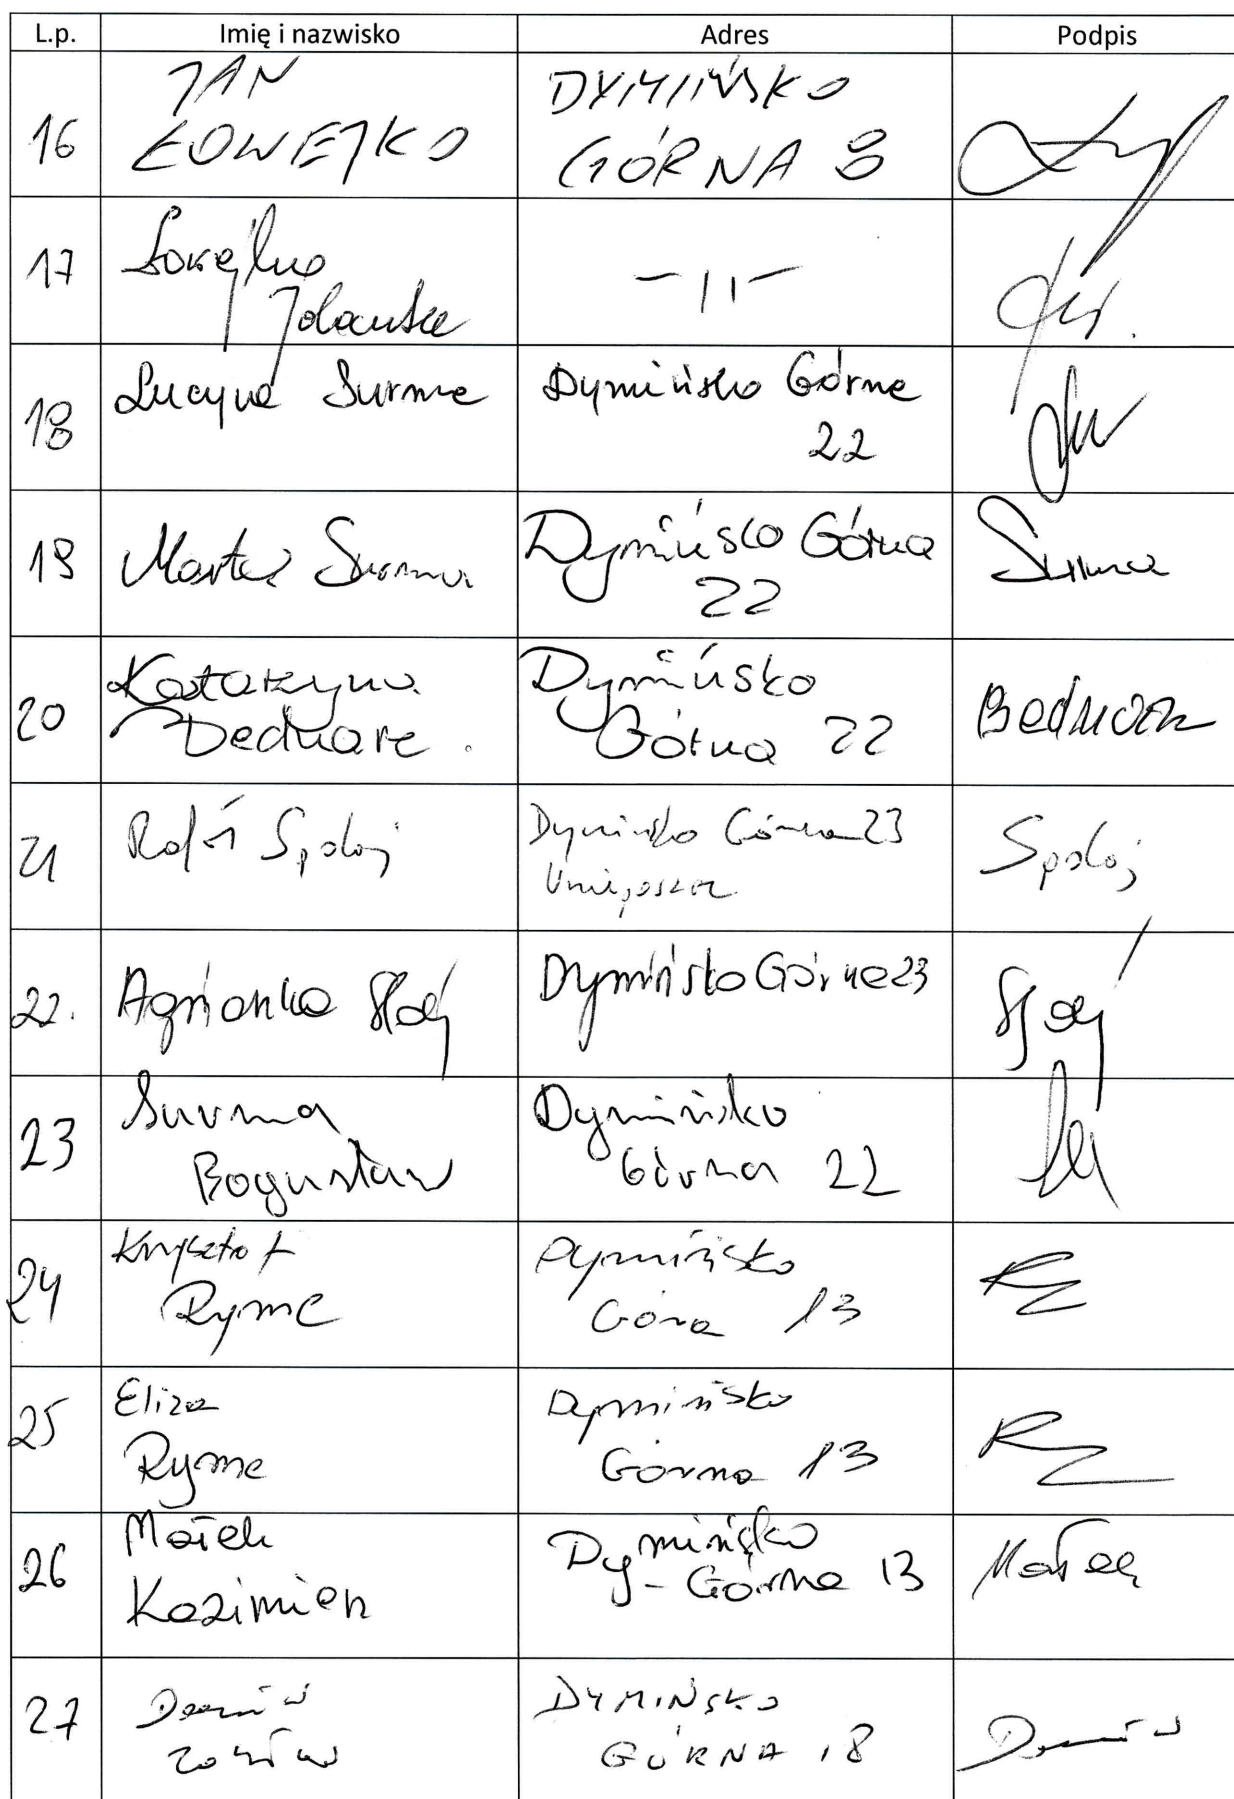 L.p. Imię i nazwisko Adres Podpis
16 JAN ŁOWEJKO DYMIŃSKO GÓRNA 8
17 Łowejko Jolanta -||-
18 Lucyna Surma Dymińsko Górna 22
19 Marta Surma Dymińsko Górna 22 Surma
20 Katarzyna Bednarz Dymińsko Górna 22 Bednarz
21 Rafał Spałoj Dymińsko Górna 23
22. Agnieszka Dymińsko Górna 23
23 Surma Bogusław Dymińsko Górna 22
24 Krzysztof Ryme Dymińsko Górna 13
25 Eliza Ryme Dymińsko Górna 13
26 Małek Kazimierz Dymińsko - Górna 13 Małek
27 DYMIŃSKO GÓRNA 18